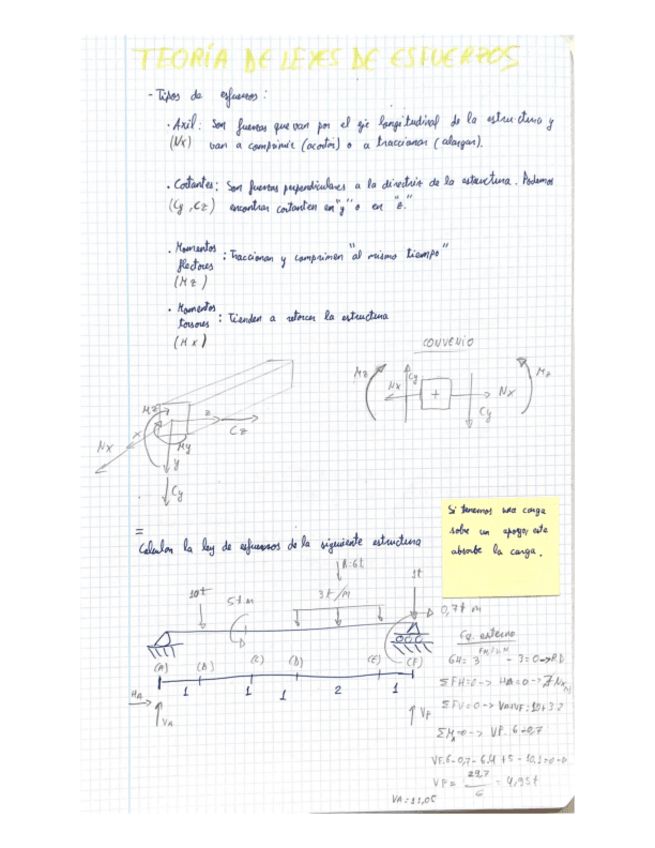 TEORÍA DE LEYES DE ESFUERZOS
- Tipos de esfuerzos:
· Axil: Son fuerzas que van por el eje longitudinal de la estructura y
(Nx) van a comprimir (acortar) o a traccionar (alargar).
· Cortantes: Son fuerzas perpendiculares a la directriz de la estructura. Podemos
(Cy, Cz) encontrar cortantes en "y" o en "z."
· Momentos
flectores : Traccionan y comprimen "al mismo tiempo"
(Mz)
· Momentos
torsores : Tienden a retorcer la estructura
(Mx)
CONVENIO
Mz Cy Nx + Nx Cy Mz
Mz z Cz
Nx x My
y
Cy
Si tenemos una carga
sobre un apoyo, este
absorbe la carga.
=
Calcular la ley de esfuerzos de la siguiente estructura
R=6t
10t 5t m 3t/m 1t
0,7t m
Eq. externo
(A) (B) (C) (D) (E) (F)
GH= 3 - 3=0
1 1 1 2 1
HA
VA
VF
ΣFH=0 -> HA=0 ->
ΣFV=0 ->
ΣMA=0 -> VF.6-0,7
VF.6-0,7-6.4+5-10.1=0
VF= 29,7/6 = 4,95t
VA=11,05